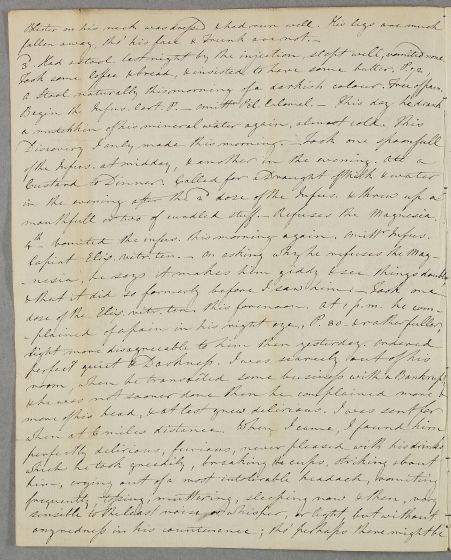 Blister on his neck was dressed & had run well. His legs are much
fallen away, tho' his face & trunk are not. -
3. Had a stool last night by the injection, slept well, vomited none
Took some Coffee & bread, & insisted to have some butter, P. 92,
a Stool naturally this morning of a darkish colour. Free of pain.
Begin the Infus. Cort. P. - mitt. Pil. Calomel. - This day he drank
a mutchken of his mineral water again, almost cold. This
Discovery I only made this morning. - Took one spoonfull
of the Infus. at midday, & another in the evening. Ate a
Custard to Dinner. Called for a Draught of Milk & water
in the evening after the 2d dose of the Infus. & threw up a
mouthfull or two of curdled stuff. - Refuses the Magnesia.
4th Vomited the infus. this morning again. Omitt. Infus.
Capiat Elix. vitr. ten. - On asking why he refuses the Mag-
-nesia, he says it makes him giddy & see things double
& that it did so formerly before I saw him. - Took one
dose of the Elix. vitr. ten. this forenoon. At 1 p.m. he com-
-plained of a pain in his right eye, P. 80 & rather fuller,
light more disagreeable to him then yesterday. Ordered
perfect quiet & Darkness. I was scarcely out of his
room, when he transacted some business with a Bankrupt,
& he was not sooner done than he complained more &
more of his head, & at last grew delirious. I was sent for
when at 6 miles distance. When I came, I found him
perfectly delirious, furious, never pleased with his drinks
which he took greedily, breaking the cups, striking about
him, crying out of a most intolerable headach, vomiting
frequently, tossing, muttering, sleeping now & then, very
sensible to the least noise or whisper, or light, but without
any redness in his countenance; tho' perhaps there might be